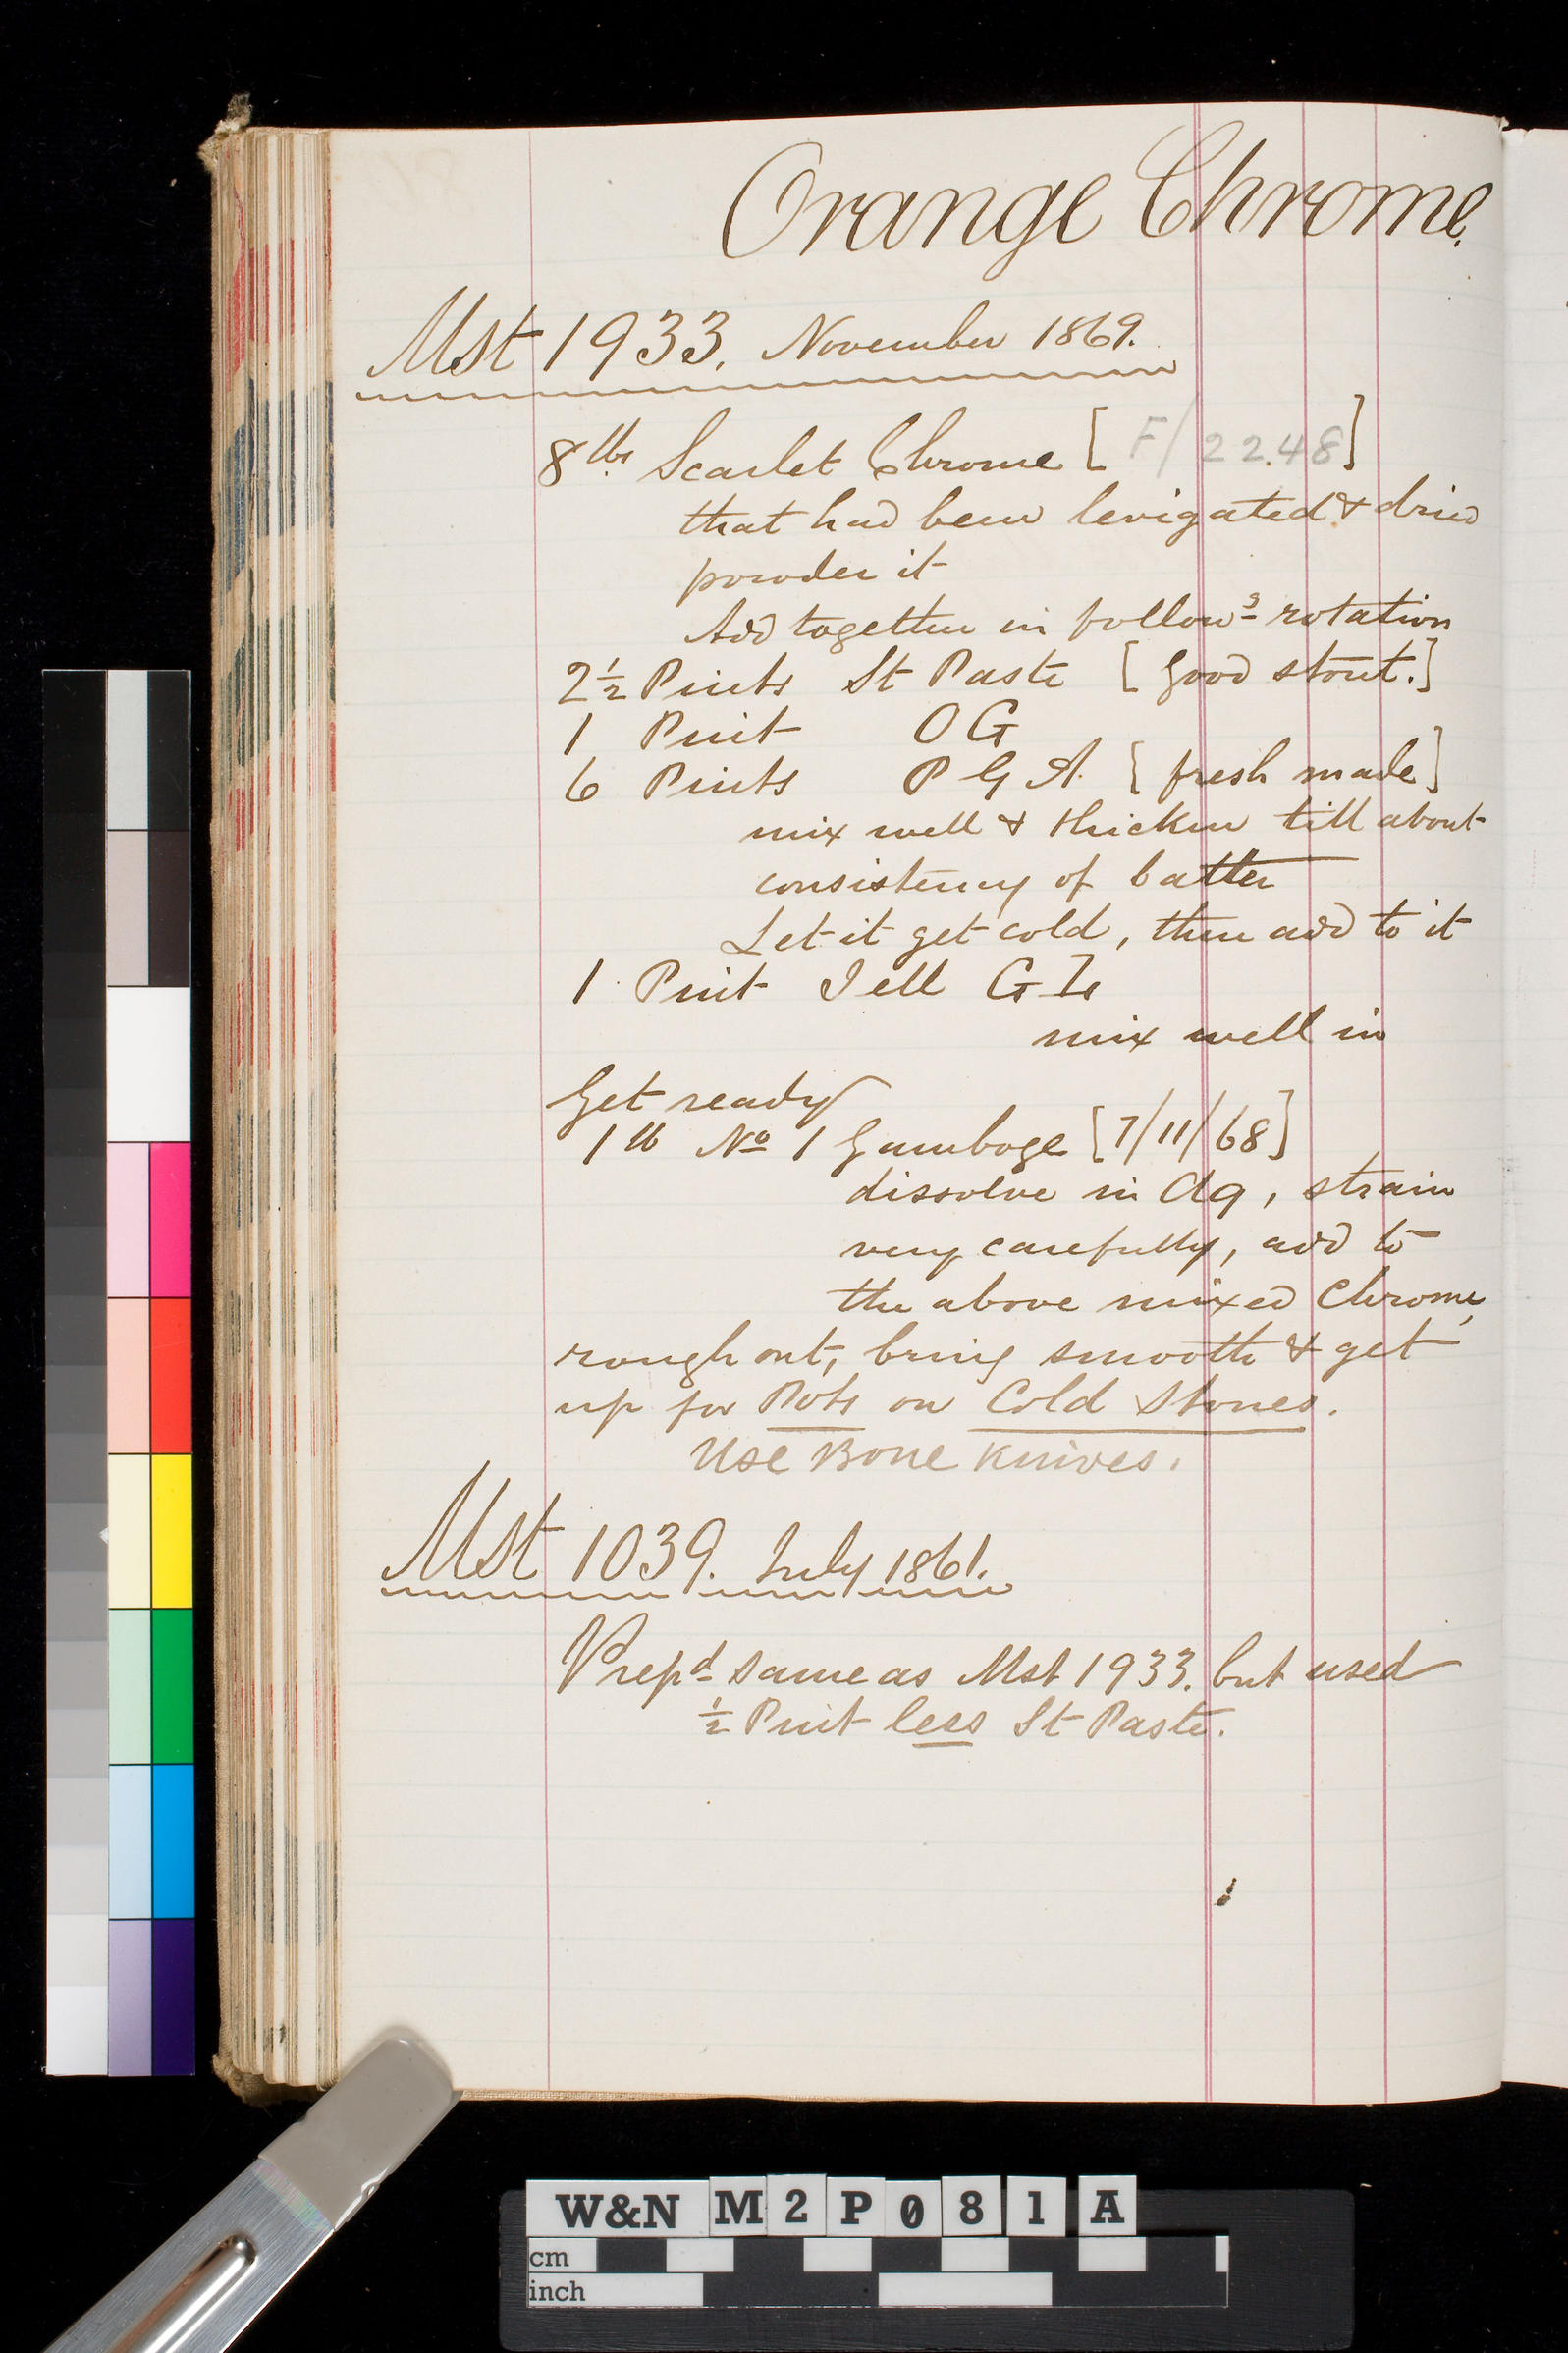 Orange Chrome.
Mst 1933. November 1869.
8 lbs Scarlet Chrome [F/22.48]
that had been levigated & dried
powder it
Add together in follows rotation
2½ Pints St Paste [Good stout.]
1 Pint OG
6 Pints P G A. [fresh made]
mix well & thicken till about
consistency of batter
Let it get cold, then add to it
1 Pint Jell G
mix well in
Get ready
1 lb No 1 Gamboge [7/11/68]
dissolve in Aq, strain
very carefully, add to
the above mixed Chrome,
rough out, bring smooth & get
up for Pots on Cold Stones.
Use Bone Knives.
Mst 1039. July 1861.
Prepd same as Mst 1933. but used
½ Pint less St Paste.
W&N M2P081A
cm
inch